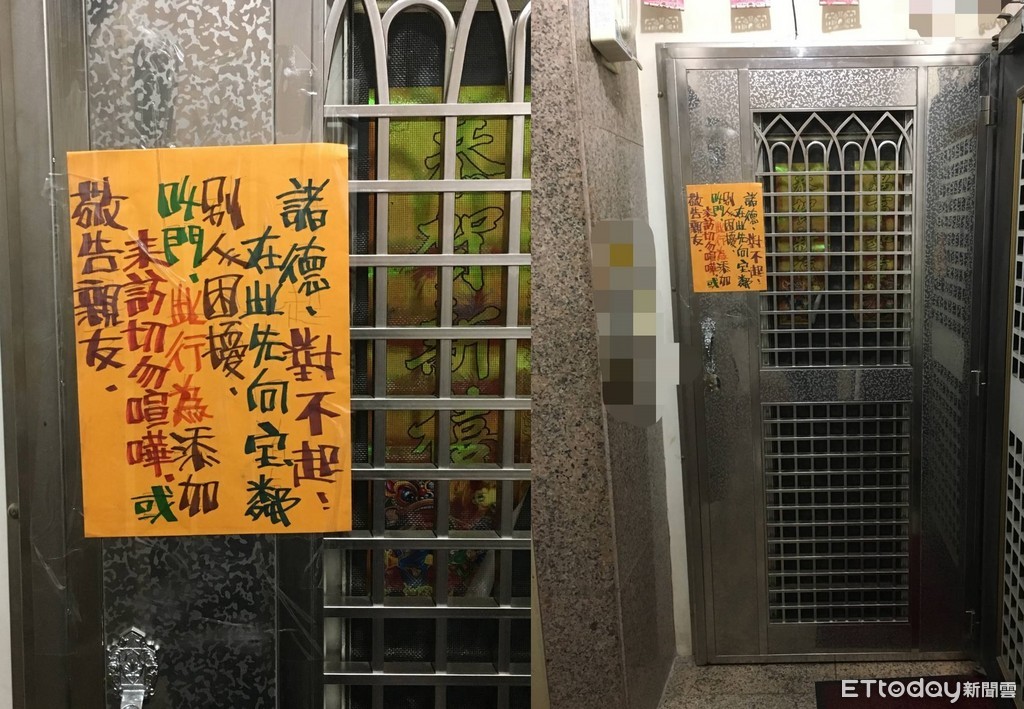 敬告親友.
来訪切勿喧嘩.或
叫門、此行為添加
別人困擾、
在此先向宝鄰
諸德、對不起、
恭祝新禧
敬告親友.
来訪切勿喧嘩.或
叫門、此行為添加
別人困擾、
在此先向宝鄰
諸德、對不起、
ETtoday新聞雲